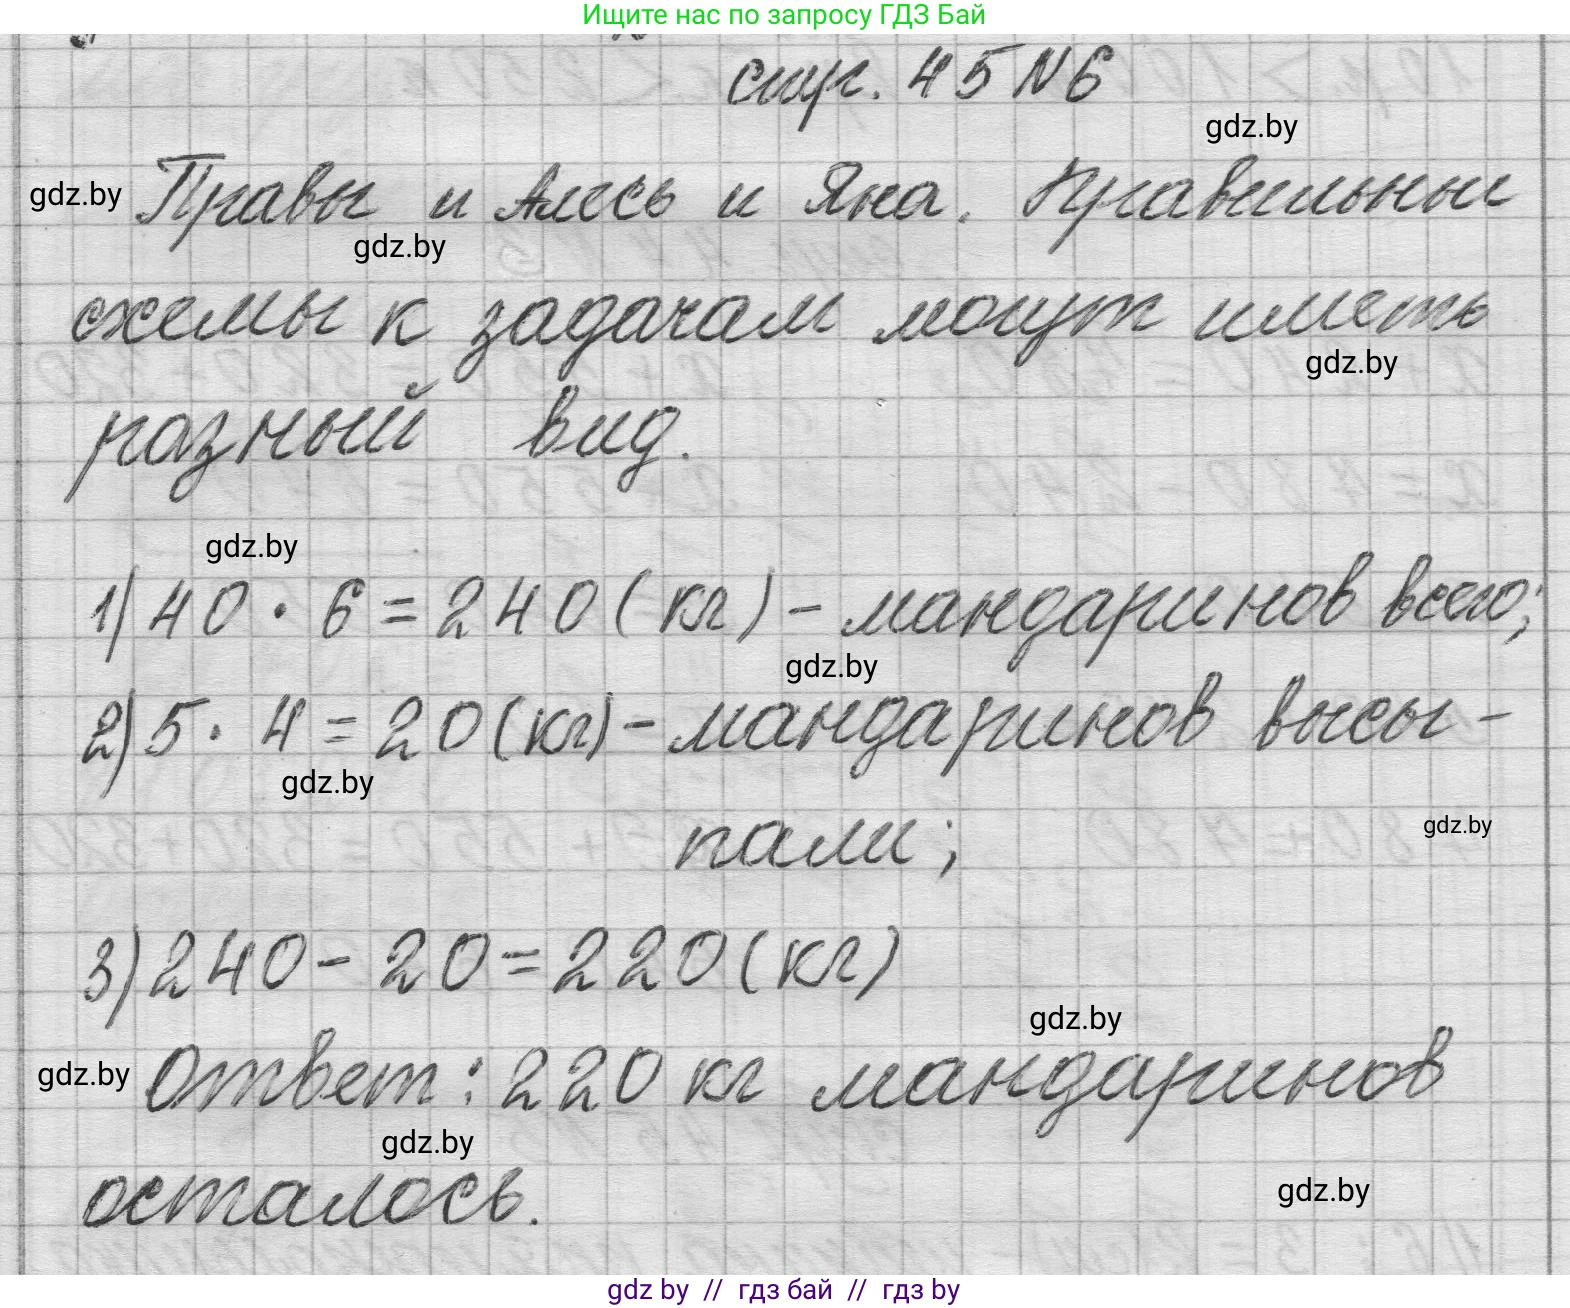 Ищите нас по запросу ГДЗ Бай
стр. 45 N 6
gdz.by
gdz.by
Правы и Алесь и Яна. Правильный
gdz.by
схемы к задачам могут иметь
gdz.by
разный вид.
gdz.by
1) 40 · 6 = 240 (кг) - мандаринов всего;
gdz.by
2) 5 · 4 = 20 (кг) - мандаринов высы-
gdz.by
пали;
gdz.by
3) 240 - 20 = 220 (кг)
gdz.by
gdz.by
Ответ: 220 кг мандаринов
gdz.by
осталось.
gdz.by
gdz by // гдз бай // гдз by